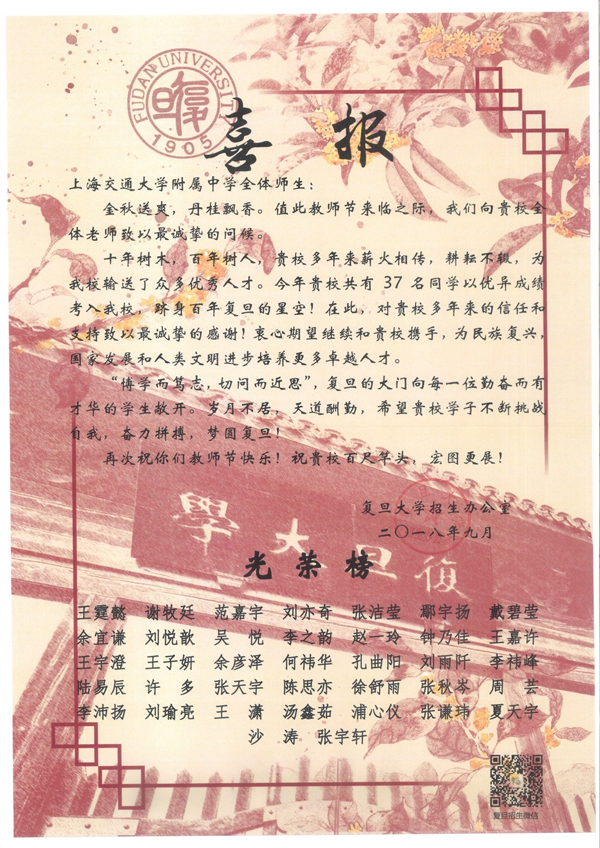 FUDAN UNIVERSITY
1905
喜报
上海交通大学附属中学全体师生：
金秋送爽，丹桂飘香。值此教师节来临之际，我们向贵校全
体老师致以最诚挚的问候。
十年树木，百年树人，贵校多年来薪火相传，耕耘不辍，为
我校输送了众多优秀人才。今年贵校共有 37 名同学以优异成绩
考入我校，跻身百年复旦的星空！在此，对贵校多年来的信任和
支持致以最诚挚的感谢！衷心期望继续和贵校携手，为民族复兴，
国家发展和人类文明进步培养更多卓越人才。
“博学而笃志，切问而近思”，复旦的大门向每一位勤奋而有
才华的学生敞开。岁月不居，天道酬勤，希望贵校学子不断挑战
自我，奋力拼搏，梦圆复旦！
再次祝你们教师节快乐！祝贵校百尺竿头，宏图更展！
復旦大學
复旦大学招生办公室
二〇一八年九月
光荣榜
王霆懿 谢牧廷 范嘉宇 刘亦奇 张洁莹 鄢宇扬 戴碧莹
余宜谦 刘悦歆 吴悦 李之韵 赵一玲 钟乃佳 王嘉许
王宇澄 王子妍 余彦泽 何祎华 孔曲阳 刘雨阡 李祎峰
陆易辰 许多 张天宇 陈思亦 徐舒雨 张秋岑 周芸
李沛扬 刘瑜亮 王潇 汤鑫茹 浦心仪 张谦玮 夏天宇
沙涛 张宇轩
复旦招生微信